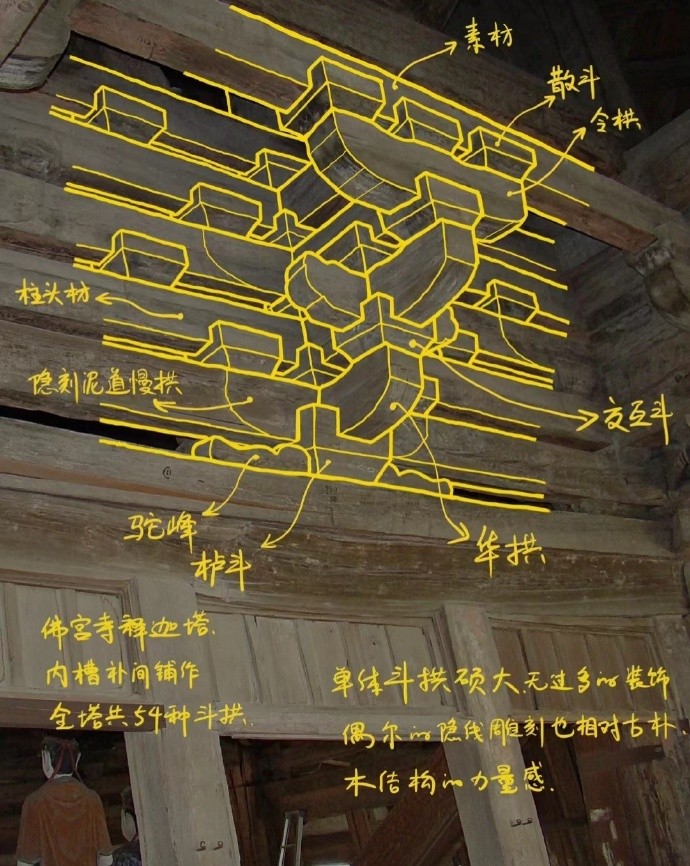 素材
散斗
令栱
柱头材
隐刻泥道慢拱
交互斗
驼峰
栌斗
华拱
佛宫寺释迦塔.
内槽补间铺作
全塔共54种斗拱.
单体斗拱硕大.无过多的装饰
偶尔的隐线雕刻也相对古朴.
木结构的力量感.